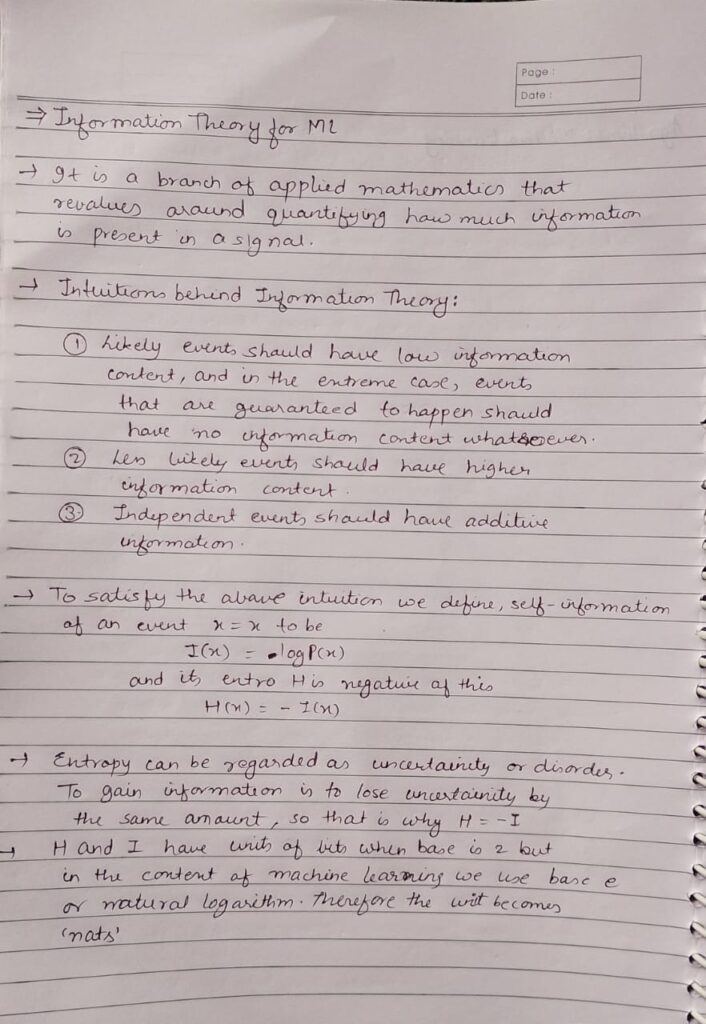 Page :
Date :
⇒ Information Theory for ML
→ It is a branch of applied mathematics that
revalues around quantifying how much information
is present in a signal.
→ Intuitions behind Information Theory:
① Likely events should have low information
content, and in the extreme case, events
that are guaranteed to happen should
have no information content whatsoever.
② Less likely events should have higher
information content.
③ Independent events should have additive
information.
→ To satisfy the above intuition we define, self-information
of an event x = x to be
I(x) = log P(x)
and its entro H is negative of this
H(x) = - I(x)
→ Entropy can be regarded as uncertainity or disorder.
To gain information is to lose uncertainity by
the same amount, so that is why H = -I
→ H and I have units of bits when base is 2 but
in the content of machine learning we use base e
or natural logarithm. Therefore the unit becomes
'nats'